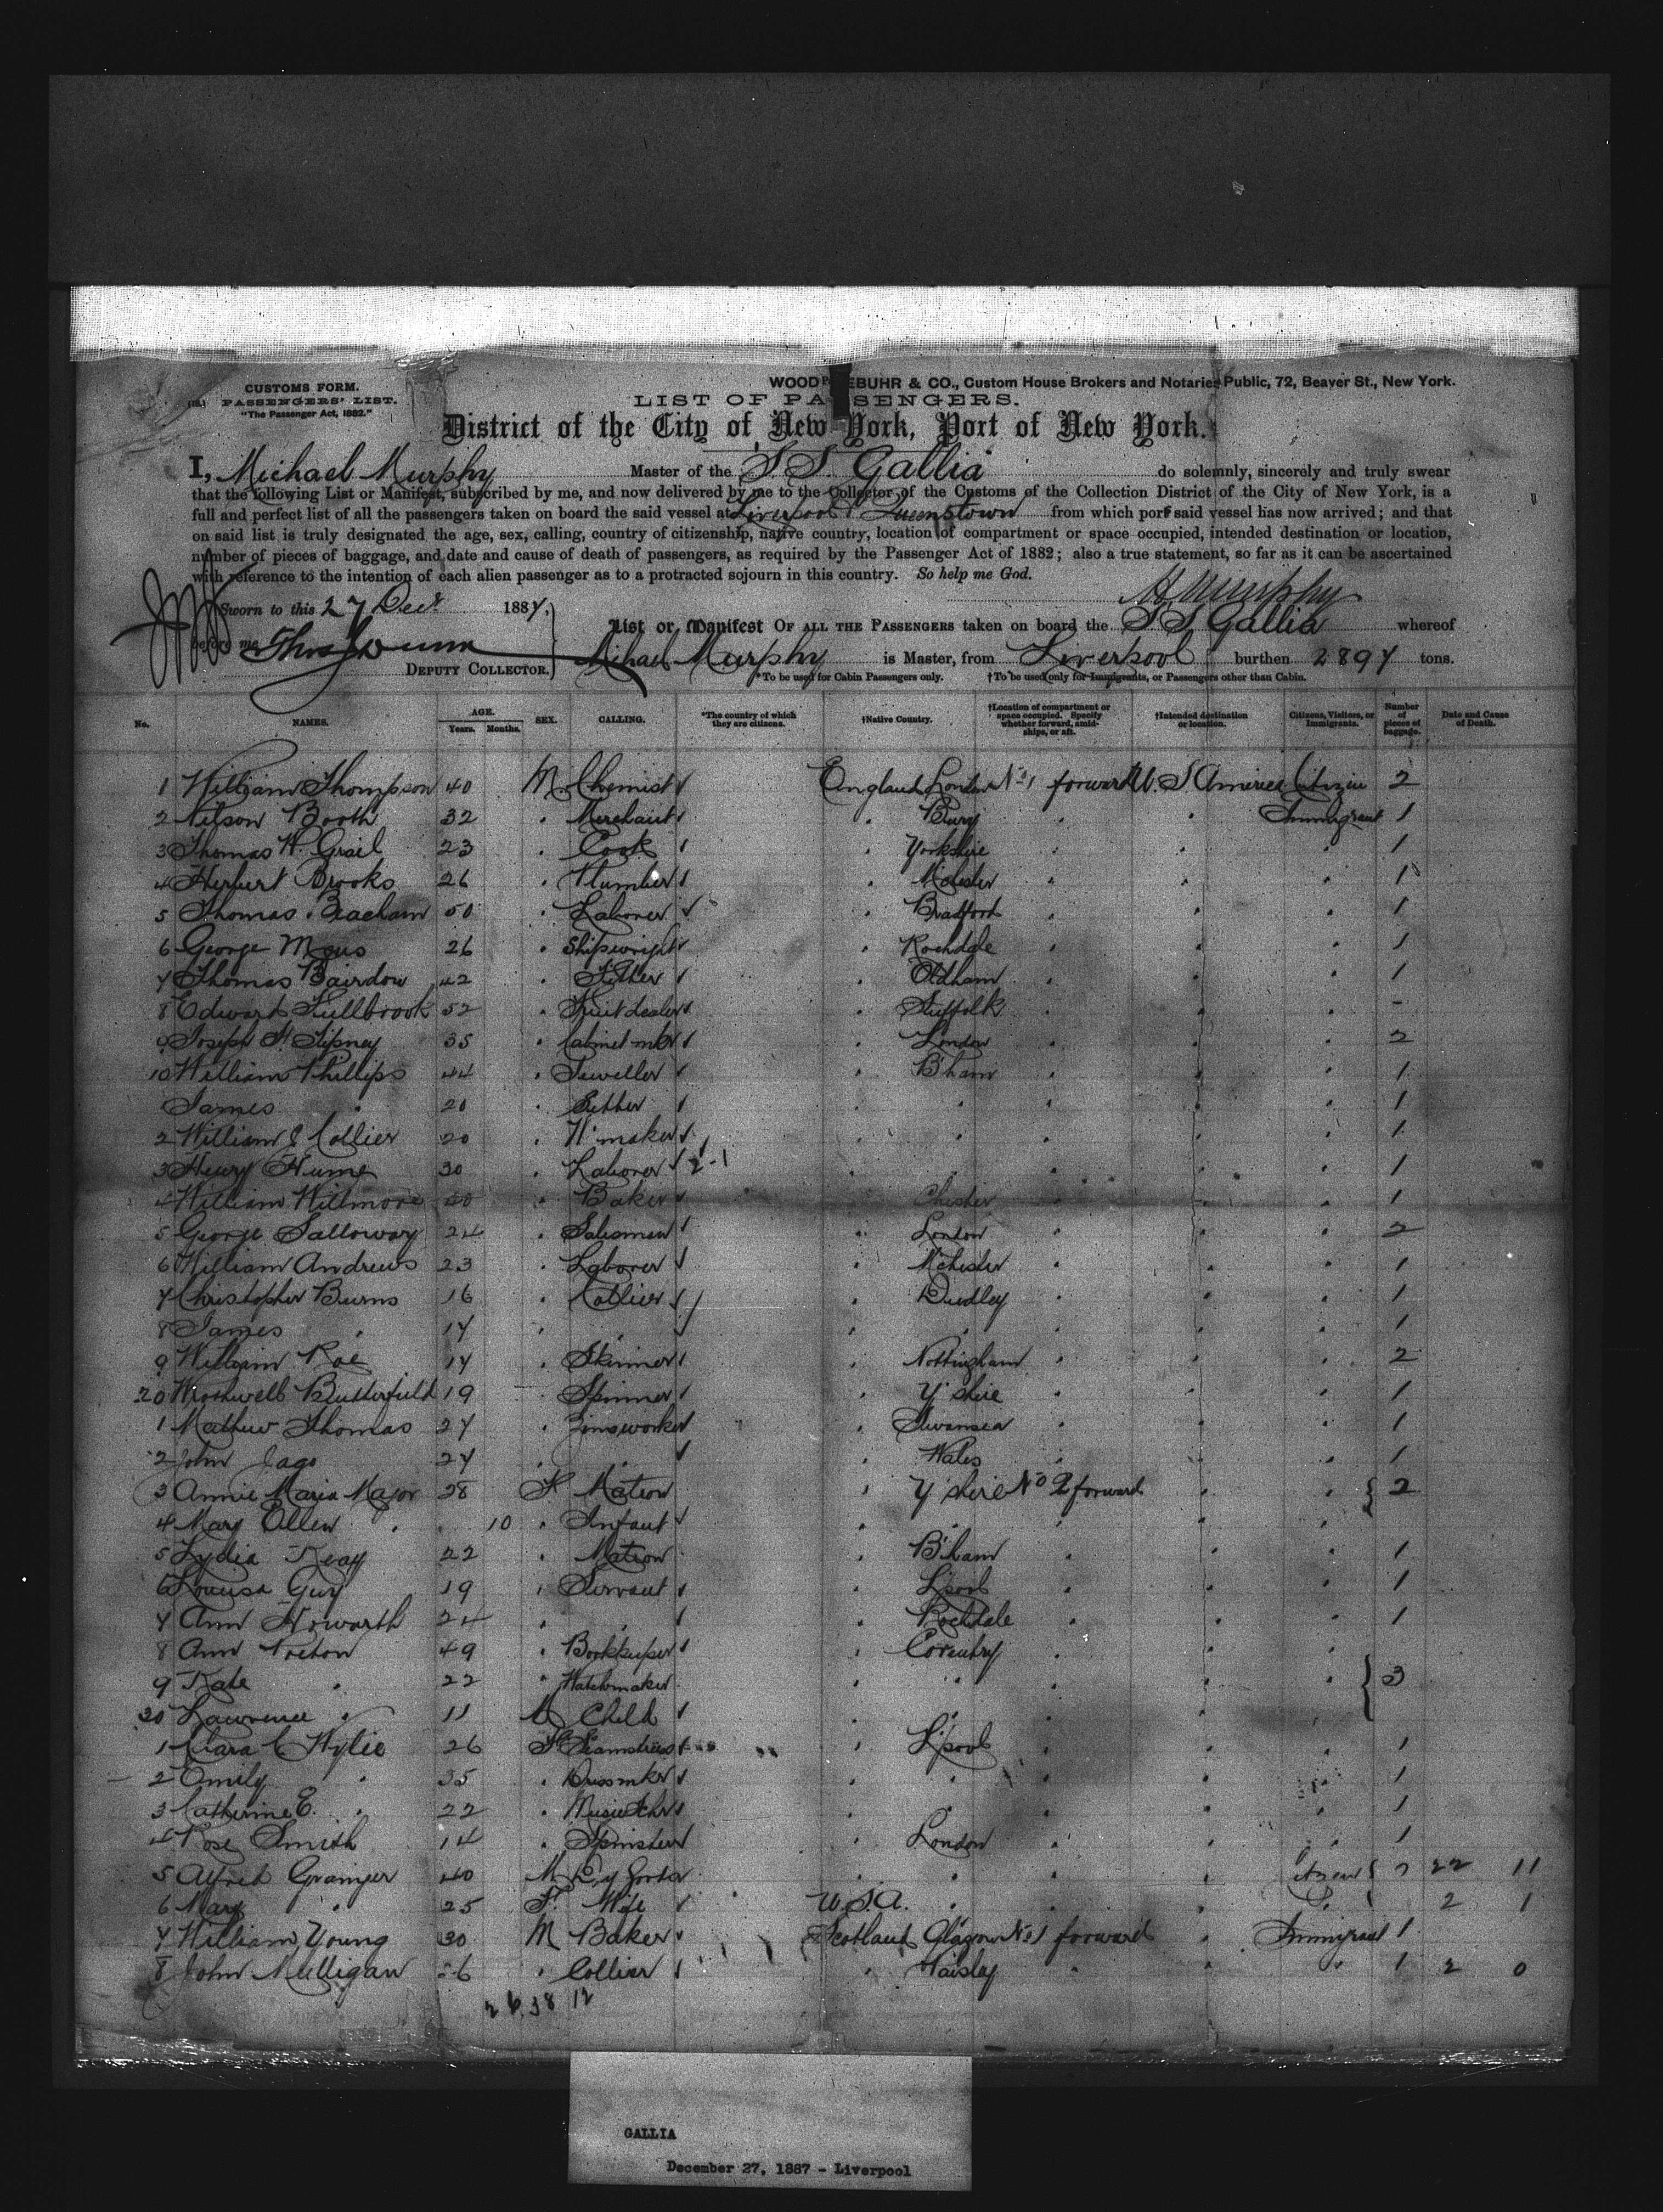 CUSTOMS FORM.
PASSENGERS' LIST.
"The Passenger Act, 1882."
WOOD EBUHR & CO., Custom House Brokers and Notaries Public, 72, Beaver St., New York.
LIST OF PASSENGERS.
District of the City of New York, Port of New York.
I, Michael Murphy Master of the S.S. Gallia do solemnly, sincerely and truly swear
that the following List or Manifest, subscribed by me, and now delivered by me to the Collector of the Customs of the Collection District of the City of New York, is a
full and perfect list of all the passengers taken on board the said vessel at Liverpool & Queenstown from which port said vessel has now arrived; and that
on said list is truly designated the age, sex, calling, country of citizenship, native country, location of compartment or space occupied, intended destination or location,
number of pieces of baggage, and date and cause of death of passengers, as required by the Passenger Act of 1882; also a true statement, so far as it can be ascertained
with reference to the intention of each alien passenger as to a protracted sojourn in this country. So help me God.
M Murphy
Sworn to this 27 Decr 1887,
before me
DEPUTY COLLECTOR.
List or Manifest OF ALL THE PASSENGERS taken on board the S S Gallia whereof
Mihael Murphy is Master, from Liverpool burthen 2897 tons.
*To be used for Cabin Passengers only. †To be used only for Immigrants, or Passengers other than Cabin.
No. NAMES. AGE. Years. Months. SEX. CALLING. *The country of which they are citizens. †Native Country. †Location of compartment or space occupied. Specify whether forward, amidships, or aft. †Intended destination or location. Citizens, Visitors, or Immigrants. Number of pieces of baggage. Date and Cause of Death.
1 William Thompson 40 M Chemist England London No 1 forward U.S America Citizen 2
2 Nilson Booth 32 " Merchant " Bury " Immigrant 1
3 Thomas W. Grail 23 " Cook " Yorkshire " " " 1
4 Herbert Brooks 26 " Plumber " Mchester " " " 1
5 Thomas Beacham 50 " Laborer " Bradford " " " 1
6 George 26 " Shipwright " Rochdale " " " 1
7 Thomas Bairdow 42 " " Oldham " " " 1
8 Edward Fullbrook 52 " Fruit dealer " Suffolk " " " -
9 Joseph H. Tipney 35 " Cabinet mkr " London " " " 2
10 William Phillips 44 " Jeweller " B'ham " " " 1
James " 20 " " " " " " 1
2 William J Collier 20 " W'maker " " " " " 1
3 Henry Hume 30 " Laborer 2-1 " " " " " 1
4 William Willmore 40 " Baker " Chester " " " 1
5 George Salloway 24 " Salesman " London " " " 2
6 William Andrews 23 " Laborer " Mchester " " " 1
7 Christopher Burns 16 " Collier " Dudley " " " 1
8 James " 17 " " " " " " " 1
9 William Roe 17 " Skinner " Nottingham " " " 2
20 Butterfield 19 " Spinner " Y'shire " " " 1
1 Mathew Thomas 27 " " Swansea " " " 1
2 John Jago 27 " " " Wales " " " 1
3 Annie Maria Major 28 F Matron " Y'shire No 2 forward " " 2
4 Mary Ellen " 10 " Infant " " " " "
5 Lydia Keay 22 " Matron " B'ham " " " 1
6 Louisa Guy 19 " Servant " L'pool " " " 1
7 Ann Howarth 24 " " " Rochdale " " " 1
8 Ann 49 " Bookkeeper " Coventry " " "
9 Kate " 22 " Watchmaker " " " " " 3
30 Lawrence " 11 M Child " " " " "
1 Clara C Wylie 26 F Seamstress " L'pool " " " 1
2 Emily " 35 " Dressmkr " " " " " 1
3 Catherine E. " 22 " Music tchr " " " " " 1
4 Rose Smith 14 " Spinster " London " " " 1
5 Alfred Grainger 40 M " " " " Citizen 22 11
6 Mary " 25 F. Wife U.S.A. " " " 2 1
7 William Young 30 M Baker Scotland Glasgow No 1 forward " Immigrant 1
8 John Mulligan 26 " Collier " Paisley " " " 1 2 0
26.38 12
GALLIA
December 27, 1887 - Liverpool